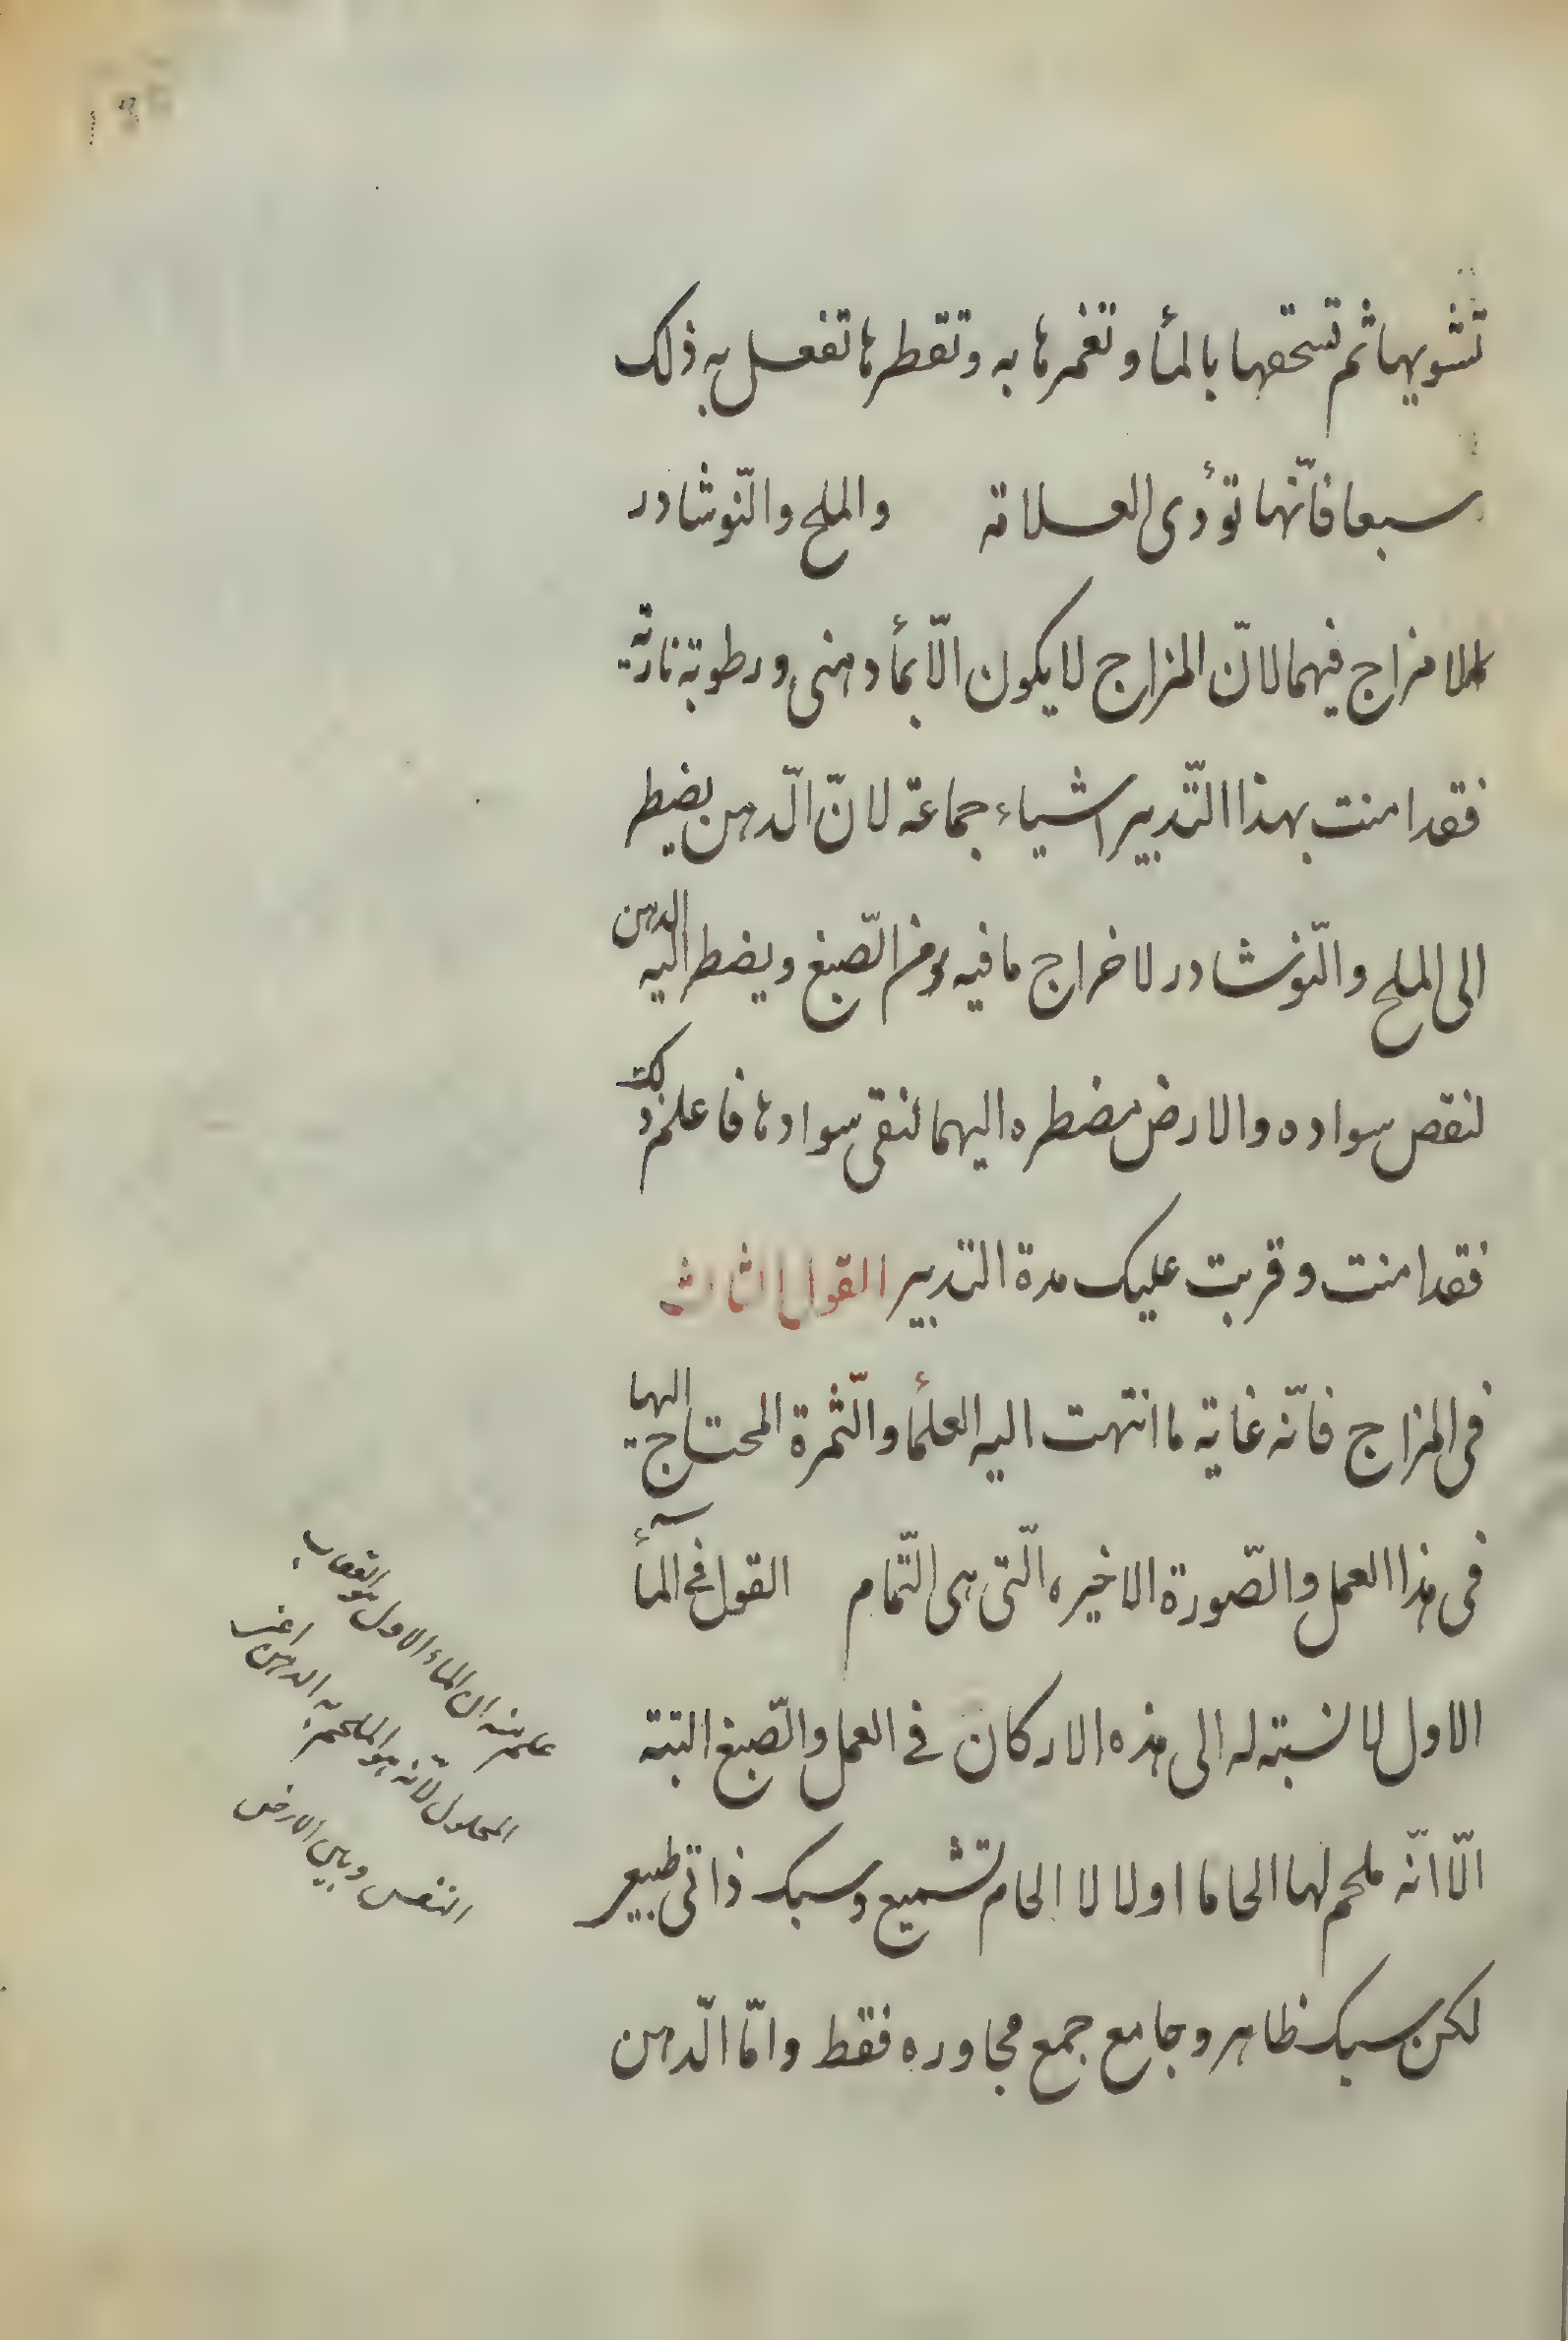 تشويها ثم تسحقها بالمأ وتغمرها به وتقطرها تفعل به ذلك
سبعا فانّها تؤدى العلاته والملح والنّوشادر
لا مزاج فيهما لانّ المزاج لا يكون الّا بمأ دهنى ورطوبة ناريّة
فقد امنت بهذا التّدبير اشياء جماعة لانّ الّدهن يضطر
الى الملح والنّوشادر لاخراج ما فيه من الصّبغ ويضطر اليه الدهن
لنقص سواده والارض مضطره اليهما لنقى سوادها فاعلم ذلك
فقد امنت وقربت عليك مدة التدبير القول الثالث
فى المزاج فانّه غاية ما انتهت اليه العلمأ والثّمرة المحتاج اليها
فى هذا العمل والصّورة الاخيره الّتى هى التّمام القول فى المأ
الاول لا نسبة له الى هذه الاركان فى العمل والصّبغ البتة
الّا انّه ملحم لها الحاما اولا لا الحام تشميع وسبك ذاتى طبيعى
لكن سبك ظاهر وجامع جمع مجاوره فقط وامّا الّدهن
علم منه ان الماء الاول هو العقاب
المحلول لانّه هو الملحم به الدهن اعنى
النفس وبين الارض